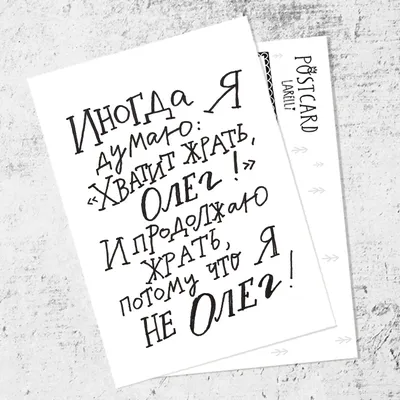 Иногда я
думаю:
«Хватит жрать,
Олег!»
И продолжаю
жрать,
потому что я
не Олег!
POSTCARD
LARELLI